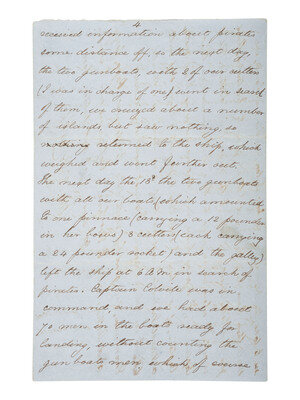 4
received information about pirates
some distance off, so the next day,
the two gunboats, with 3 of our cutters
(I was in charge of one) went in search
of them, we cruized about a number
of islands but saw nothing, so
returned to the ship, which
weighed and went further out.
The next day the 18th the two gunboats
with all our boats (which amounted
to one pinnace (carrying a 12 pounder
in her bows) 3 cutters (each carrying
a 24 pounder rocket) and the galley)
left the ship at 6 A.M in search of
pirates. Captain Colvile was in
command, and we had about
70 men in the boats ready for
landing, without counting the
gun boats men which of course